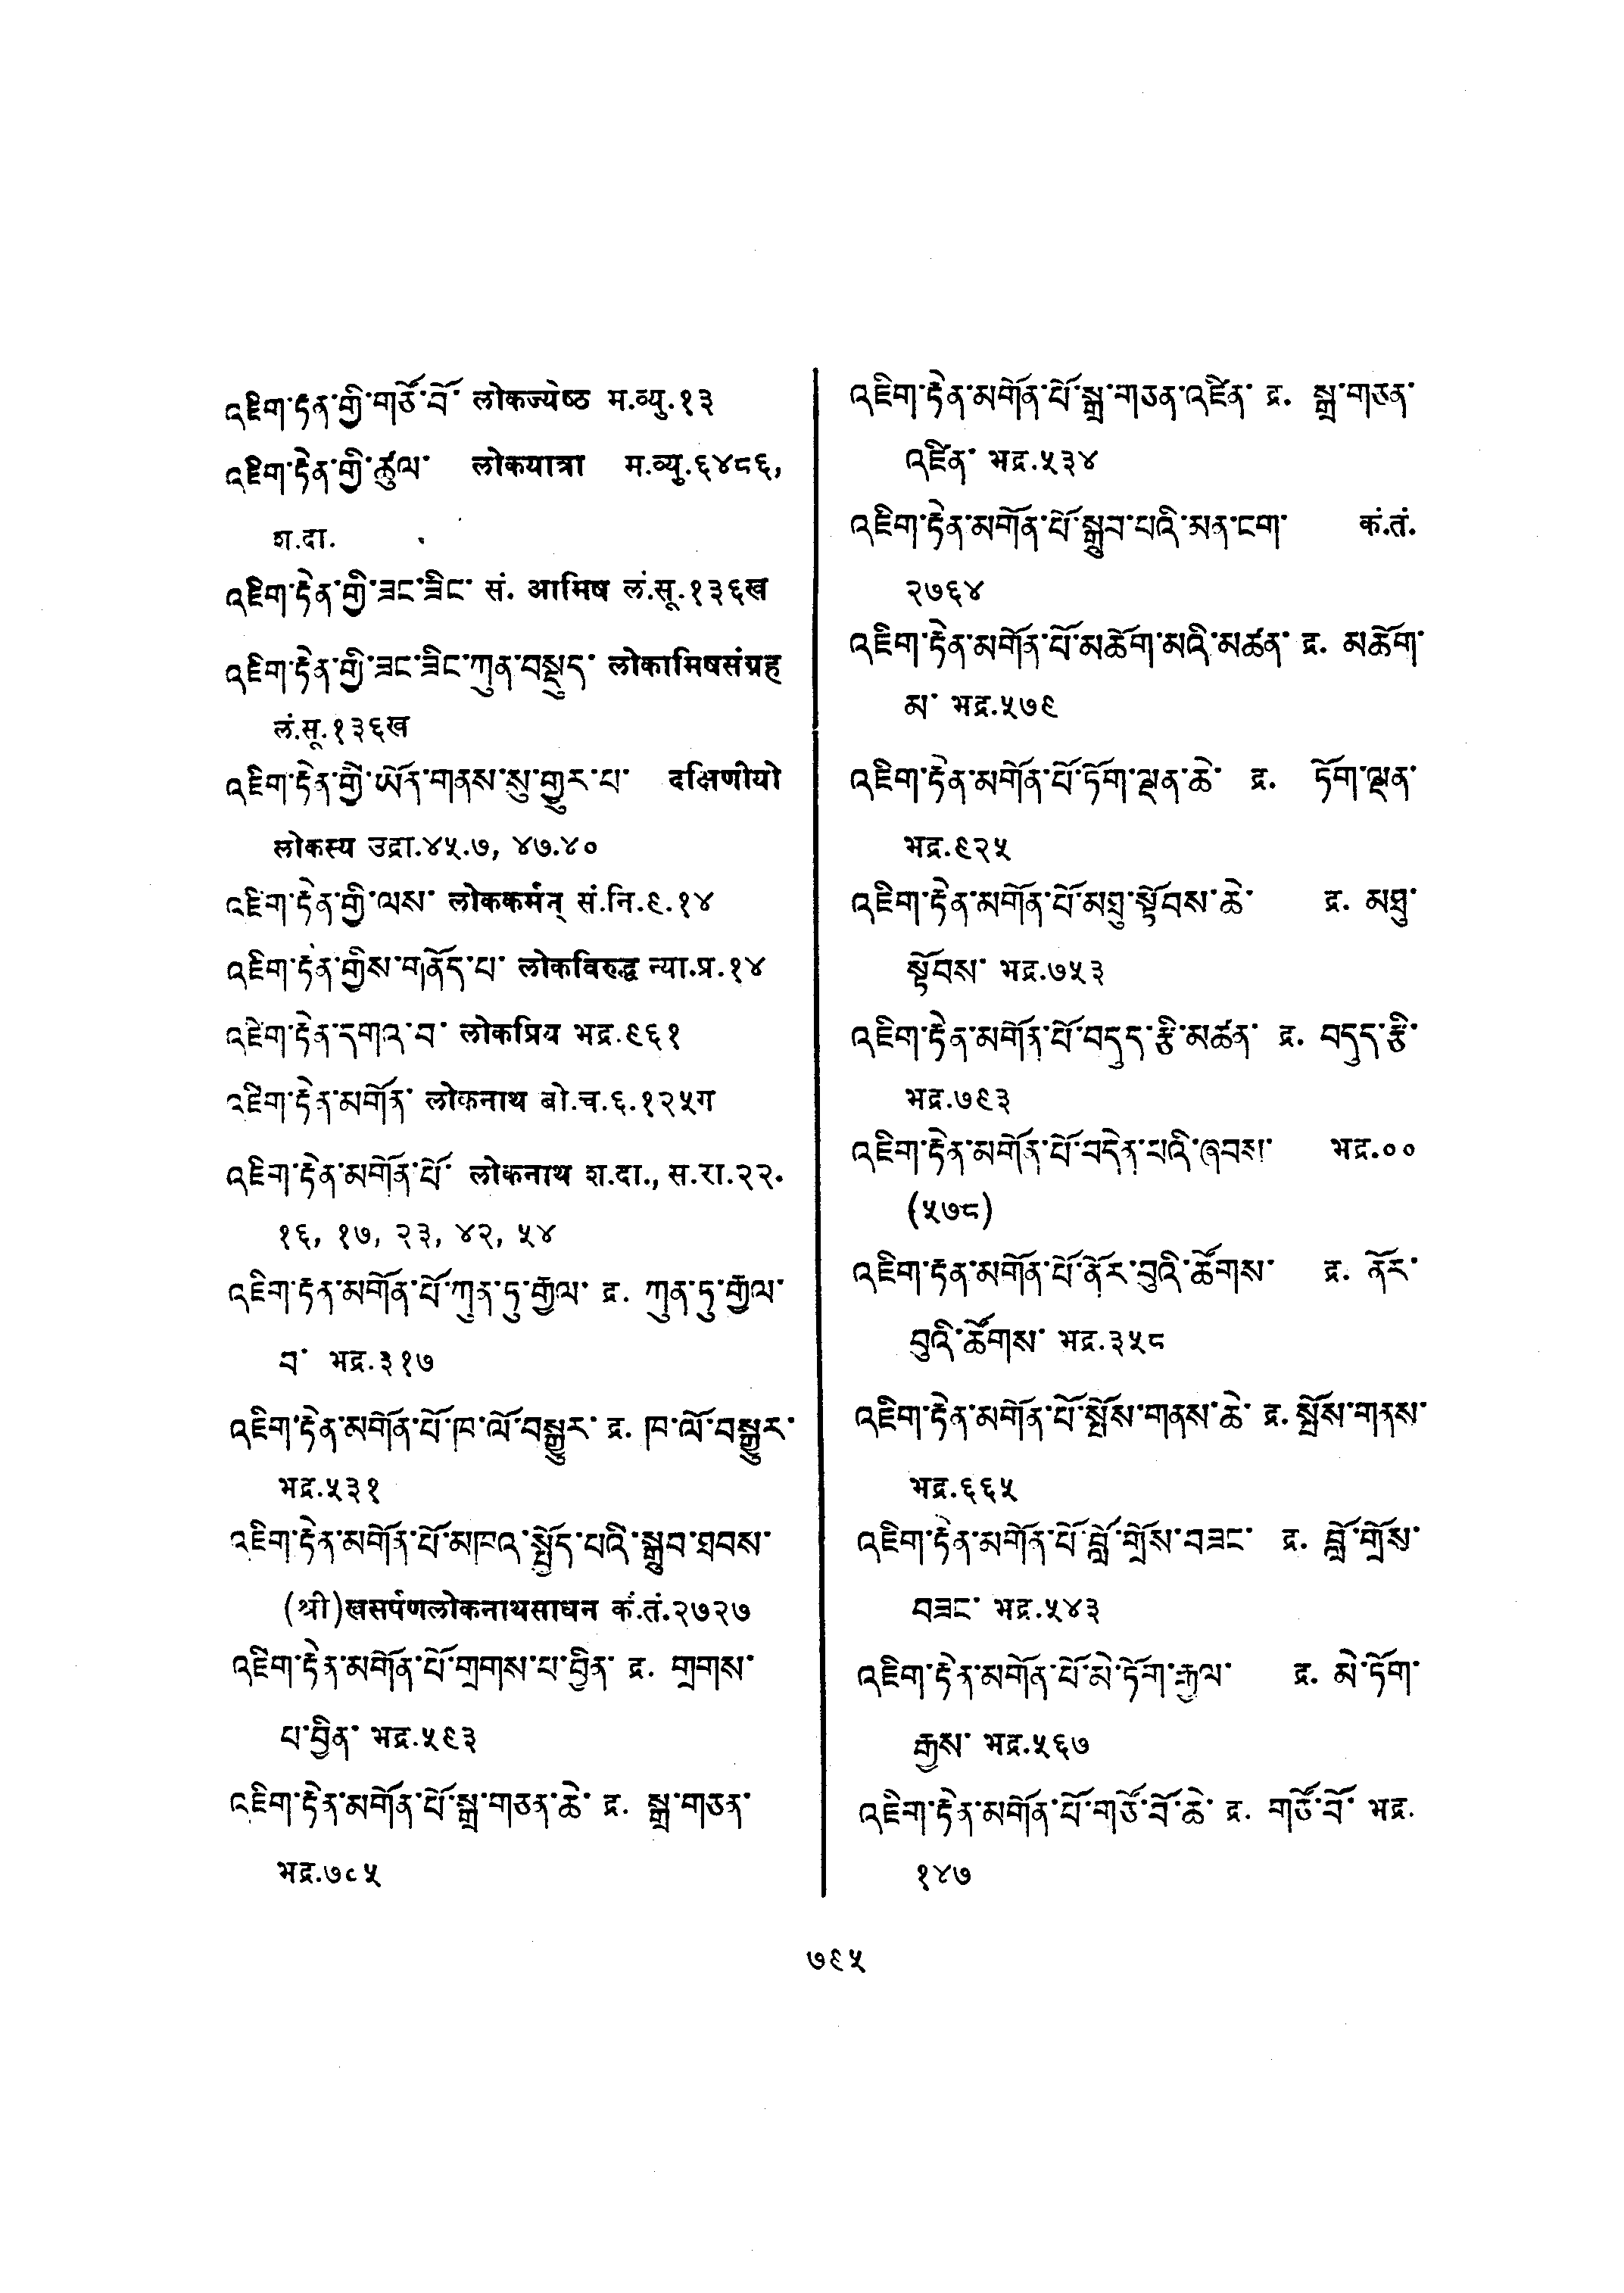 འཇིག་རྟེན་གྱི་གཙོ་བོ་ लोकज्येष्ठ म.व्यु.१३
འཇིག་རྟེན་གྱི་ཚུལ་ लोकयात्रा म.व्यु.६४८६,
श.दा.
འཇིག་རྟེན་གྱི་ཟང་ཟིང་ सं. आमिष लं.सू.१३६ख
འཇིག་རྟེན་གྱི་ཟང་ཟིང་ཀུན་བསྡུད་ लोकामिषसंग्रह
लं.सू.१३६ख
འཇིག་རྟེན་གྱི་ཡོན་གནས་སུ་གྱུར་པ་ दक्षिणीयो
लोकस्य उद्रा.४५.७, ४७.४०
འཇིག་རྟེན་གྱི་ལས་ लोककर्मन् सं.नि.९.१४
འཇིག་རྟེན་གྱིས་གནོད་པ་ लोकविरुद्ध न्या.प्र.१४
འཇིག་རྟེན་དགའ་བ་ लोकप्रिय भद्र.९६१
འཇིག་རྟེན་མགོན་ लोकनाथ बो.च.६.१२५ग
འཇིག་རྟེན་མགོན་པོ་ लोकनाथ श.दा., स.रा.२२.
१६, १७, २३, ४२, ५४
འཇིག་རྟེན་མགོན་པོ་ཀུན་ཏུ་རྒྱལ་ द्र. ཀུན་ཏུ་རྒྱལ་
བ་ भद्र.३१७
འཇིག་རྟེན་མགོན་པོ་ཁ་ལོ་བསྒྱུར་ द्र. ཁ་ལོ་བསྒྱུར་
भद्र.५३१
འཇིག་རྟེན་མགོན་པོ་མཁའ་སྤྱོད་པའི་སྒྲུབ་ཐབས་
(श्री)खसर्पणलोकनाथसाधन कं.तं.२७२७
འཇིག་རྟེན་མགོན་པོ་གྲགས་པ་བྱིན་ द्र. གྲགས་
པ་བྱིན་ भद्र.५९३
འཇིག་རྟེན་མགོན་པོ་སྒྲ་གཅན་ཆེ་ द्र. སྒྲ་གཅན་
भद्र.७८५
འཇིག་རྟེན་མགོན་པོ་སྒྲ་གཅན་འཛིན་ द्र. སྒྲ་གཅན་
འཛིན་ भद्र.५३४
འཇིག་རྟེན་མགོན་པོ་སྒྲུབ་པའི་མན་ངག་ कं.तं.
२७६४
འཇིག་རྟེན་མགོན་པོ་མཆོག་མའི་མཚན་ द्र. མཆོག་
མ་ भद्र.५७९
འཇིག་རྟེན་མགོན་པོ་ཏོག་ལྡན་ཆེ་ द्र. ཏོག་ལྡན་
भद्र.९२५
འཇིག་རྟེན་མགོན་པོ་མཐུ་སྟོབས་ཆེ་ द्र. མཐུ་
སྟོབས་ भद्र.७५३
འཇིག་རྟེན་མགོན་པོ་བདུད་རྩི་མཚན་ द्र. བདུད་རྩི་
भद्र.७९३
འཇིག་རྟེན་མགོན་པོ་བདེན་པའི་ཞབས་ भद्र.००
(५७८)
འཇིག་རྟེན་མགོན་པོ་ནོར་བུའི་ཚོགས་ द्र. ནོར་
བུའི་ཚོགས་ भद्र.३५८
འཇིག་རྟེན་མགོན་པོ་སྤོས་གནས་ཆེ་ द्र. སྤོས་གནས་
भद्र.६६५
འཇིག་རྟེན་མགོན་པོ་བློ་གྲོས་བཟང་ द्र. བློ་གྲོས་
བཟང་ भद्र.५४३
འཇིག་རྟེན་མགོན་པོ་མེ་ཏོག་རྒྱལ་ द्र. མེ་ཏོག་
རྒྱས་ भद्र.५६७
འཇིག་རྟེན་མགོན་པོ་གཙོ་བོ་ཆེ་ द्र. གཙོ་བོ་ भद्र.
१४७
७९५